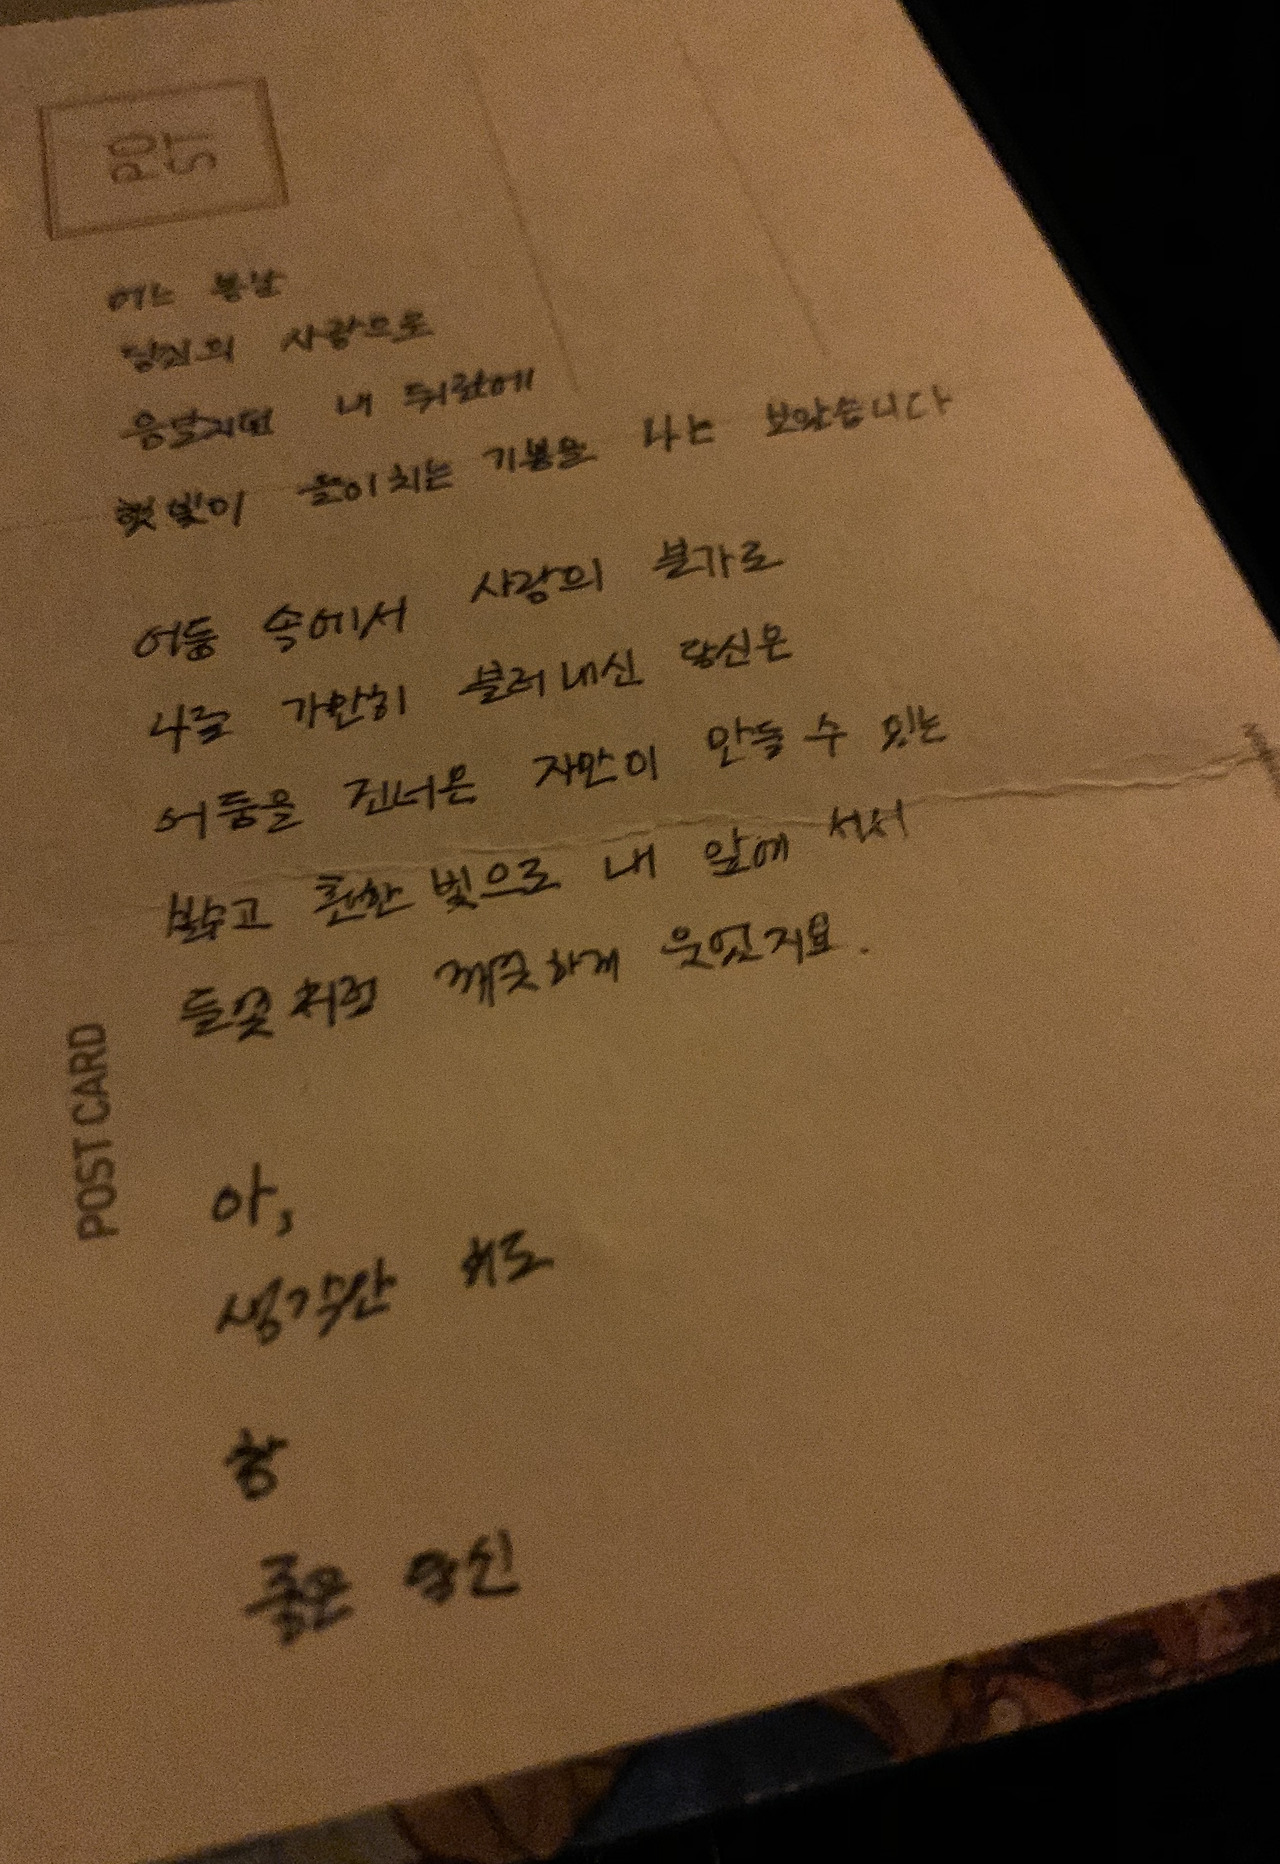 PO
ST
어느 봄날
당신의 사랑으로
응달지던 내 뒤란에
햇빛이 들이치는 기봄을 나는 보았습니다
어둠 속에서 사랑의 불가로
나를 가만히 불러내신 당신은
어둠을 건너온 자만이 만들 수 있는
밝고 환한 빛으로 내 앞에 서서
들꽃처럼 깨끗하게 웃었지요.
아,
생각만 해도
참
좋은 당신
POST CARD